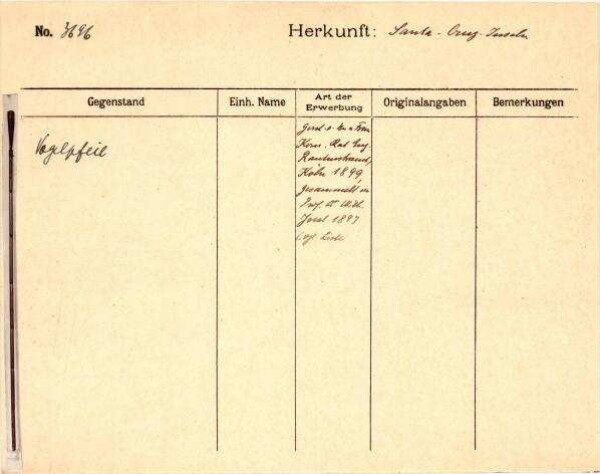 No. 3696
Herkunft: Santa-Cruz-Inseln
Gegenstand
Einh. Name
Art der
Erwerbung
Originalangaben
Bemerkungen
Vogelpfeil
Gesch. v.
Kom. Rat Eug.
Rautenstrauch,
Köln 1899,
gesammelt v.
Prof. Dr Wilh.
Joest 1897
vgl. Liste